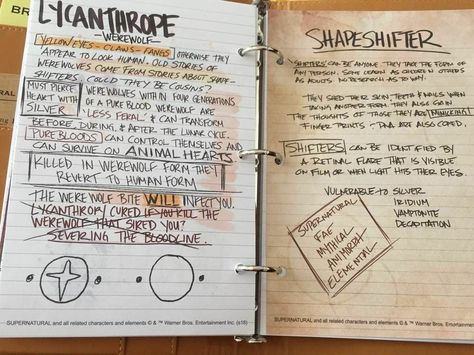 BR
LYCANTHROPE
-WEREWOLF-
YELLOW EYES - CLAWS - FANGS OTHERWISE THEY
APPEAR TO LOOK HUMAN. OLD STORIES OF
WEREWOLVES COME FROM STORIES ABOUT SHAPE-
SHIFTERS COULD THEY BE COUSINS?
MUST PIERCE
HEART WITH
SILVER
WEREWOLVES WITH IN FOUR GENERATIONS
OF A PURE BLOOD WEREWOLF ARE
"LESS FERAL" & CAN TRANSFORM
BEFORE, DURING, & AFTER THE LUNAR CYCLE.
PUREBLOODS CAN CONTROL THEMSELVES AND
CAN SURVIVE ON ANIMAL HEARTS.
KILLED IN WEREWOLF FORM THEY
REVERT TO HUMAN FORM
THE WEREWOLF BITE WILL INFECT YOU.
LYCANTHROPY CURED IF YOU KILL THE
WEREWOLF THAT SIRED YOU?
SEVERING THE BLOODLINE.
SUPERNATURAL and all related characters and elements © & ™ Warner Bros. Entertainment Inc. (s18)
SHAPESHIFTER
SHIFTERS CAN BE ANYONE. THEY TAKE THE FORM OF
ANY PERSON. SOME LEARN AS CHILDREN OTHERS
AS ADULTS. NO RESEARCH AS TO WHY.
- THEY SHED THEIR SKIN TEETH & NAILS WHEN
TAKING ANOTHER FORM. THEY ALSO GAIN
THE THOUGHTS OF THOSE THEY ARE MIMICKING.
FINGER PRINTS - DNA ARE ALSO COPIED.
SHIFTERS CAN BE IDENTIFIED BY
A RETINAL FLARE THAT IS VISIBLE
ON FILM OR WHEN LIGHT HITS THEIR EYES.
VULNERABLE TO SILVER
IRIDIUM
VAMPTONITE
DECAPITATION
SUPERNATURAL
FAE
MYTHICAL
ANIMORTAL
ELEMENTAL
SUPERNATURAL and all related characters and elements © & ™ Warner Bros. Entertainment Inc.